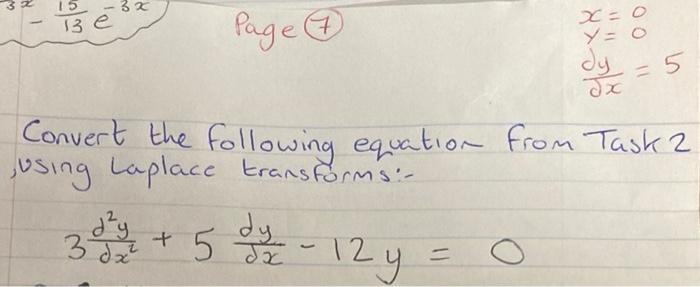 3x - 15/13 e^-3x
Page 7
x = 0
y = 0
dy/dx = 5
Convert the following equation from Task 2
, using Laplace transforms:-
3 d²y/dx² + 5 dy/dx - 12y = 0